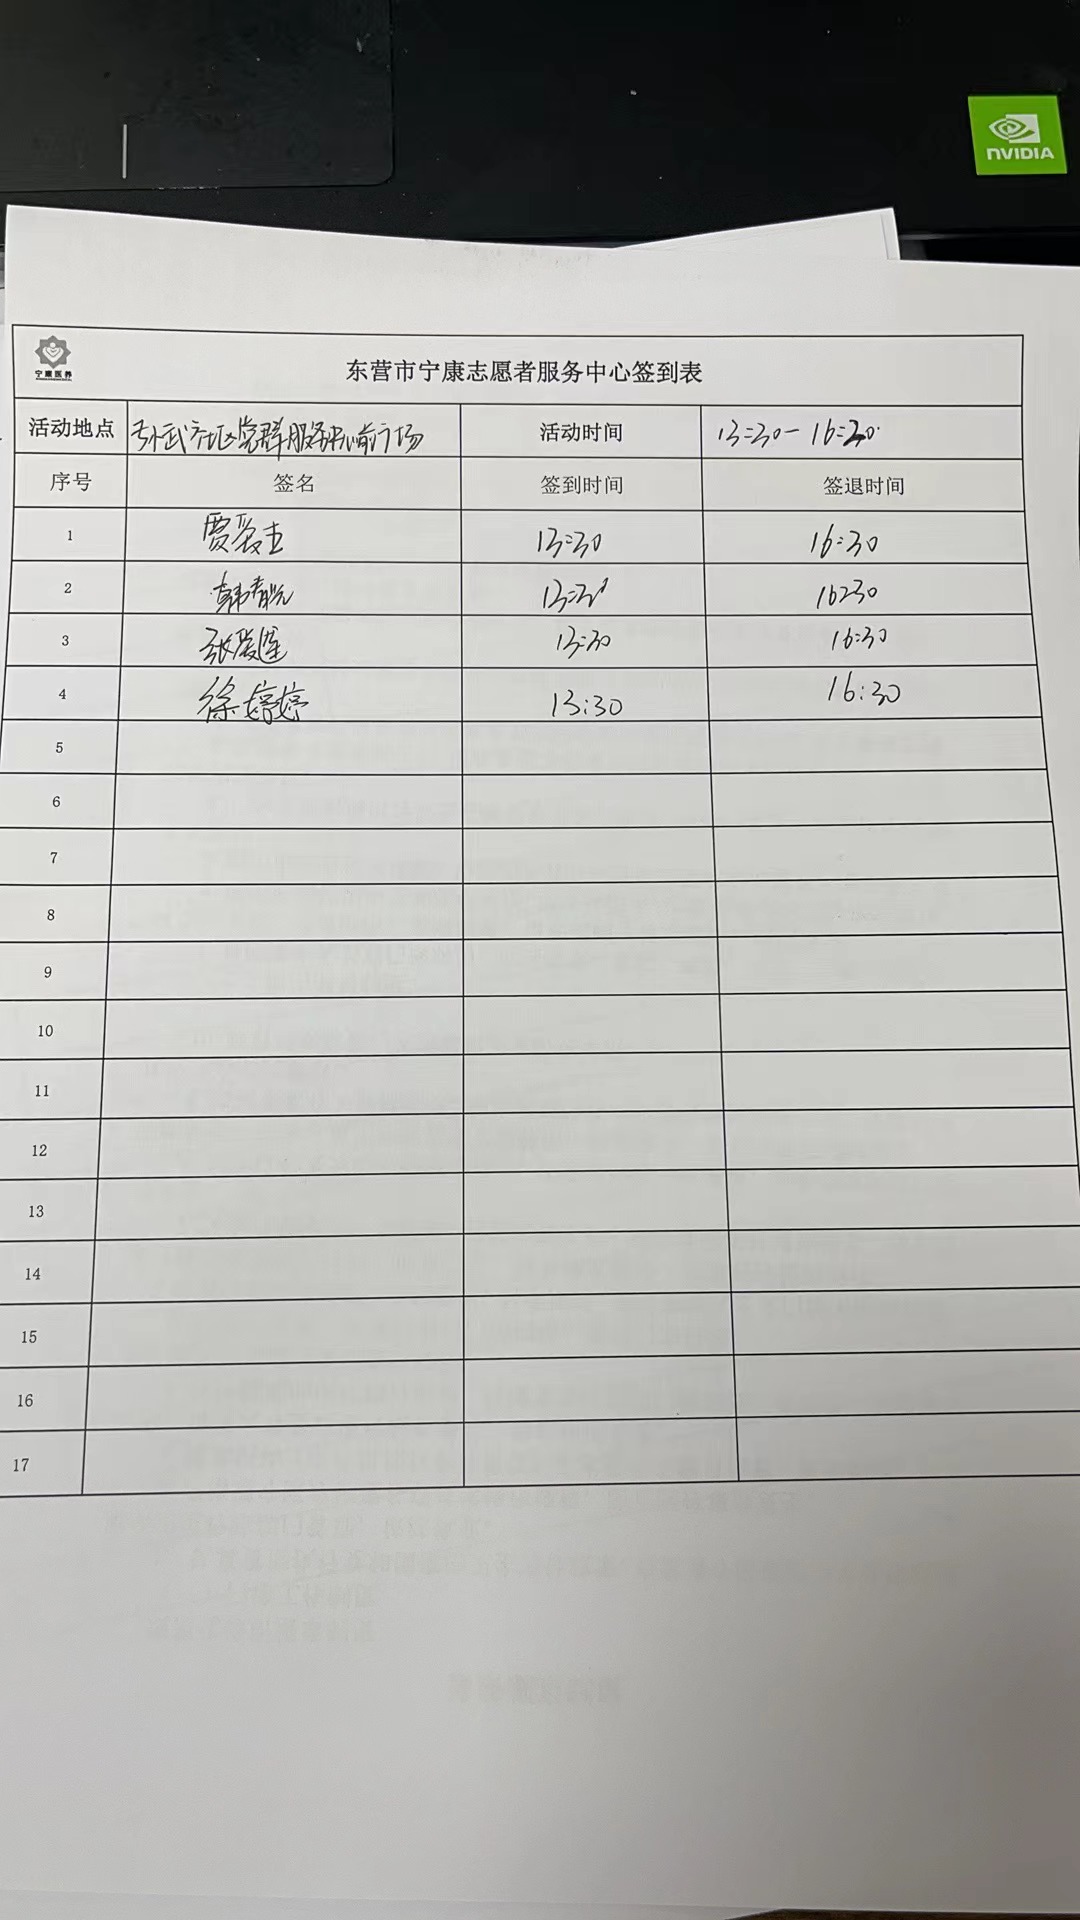 NVIDIA
宁康医养
东营市宁康志愿者服务中心签到表
活动地点 孙武社区党群服务中心前广场 活动时间 13:30-16:30
序号 签名 签到时间 签退时间
1 贾 13:30 16:30
2 韩 13:30 16:30
3 张爱莲 13:30 16:30
4 徐婷婷 13:30 16:30
5
6
7
8
9
10
11
12
13
14
15
16
17